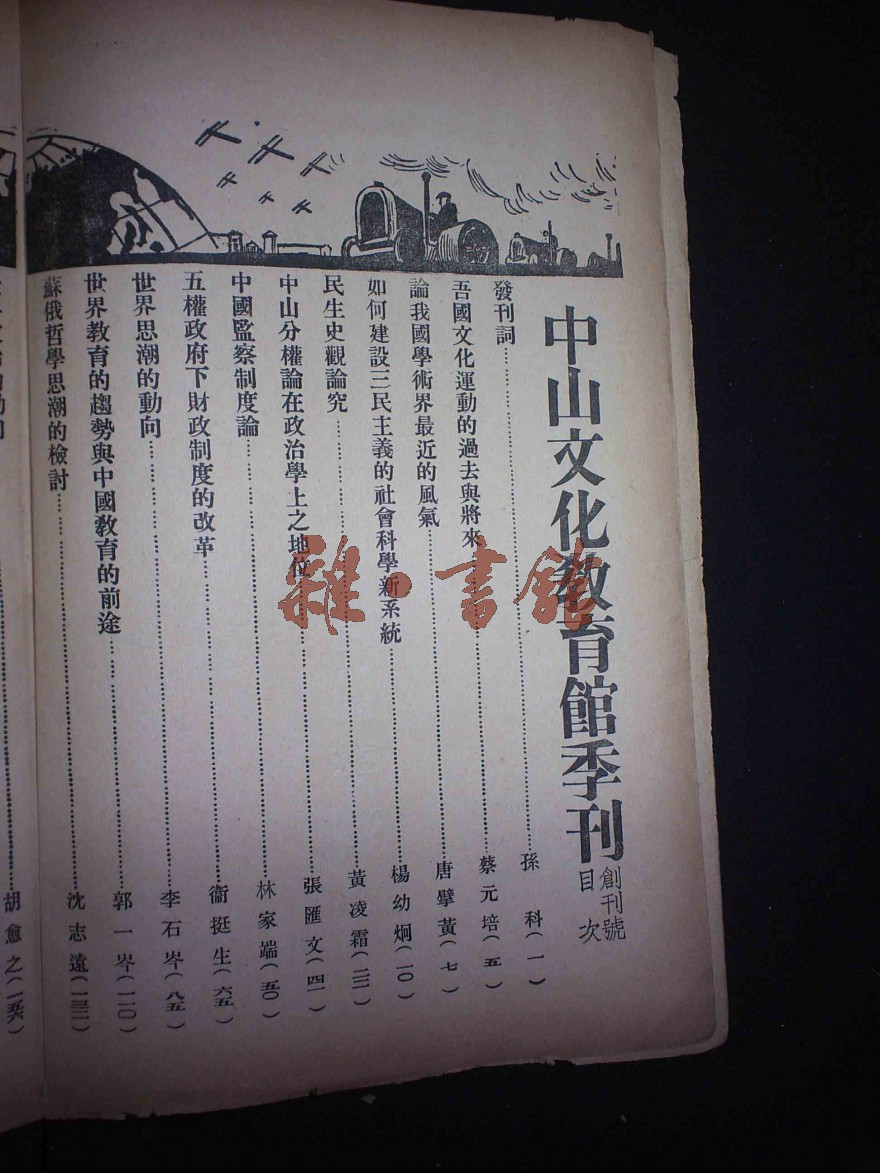 中山文化教育館季刊
創刊號
目次
發刊詞……孫科(一)
吾國文化運動的過去與將來……蔡元培(五)
論我國學術界最近的風氣……唐擘黃(七)
如何建設三民主義的社會科學新系統……楊幼炯(一〇)
民生史觀論究……黃凌霜(二二)
中山分權論在政治學上之地位……張匯文(四一)
中國監察制度論……林家端(五〇)
五權政府下財政制度的改革……衞挺生(六五)
世界思潮的動向……李石岑(八五)
世界教育的趨勢與中國教育的前途……郭一岑(一二〇)
蘇俄哲學思潮的檢討……沈志遠(一三二)
胡愈之(一五六)
雜·書館